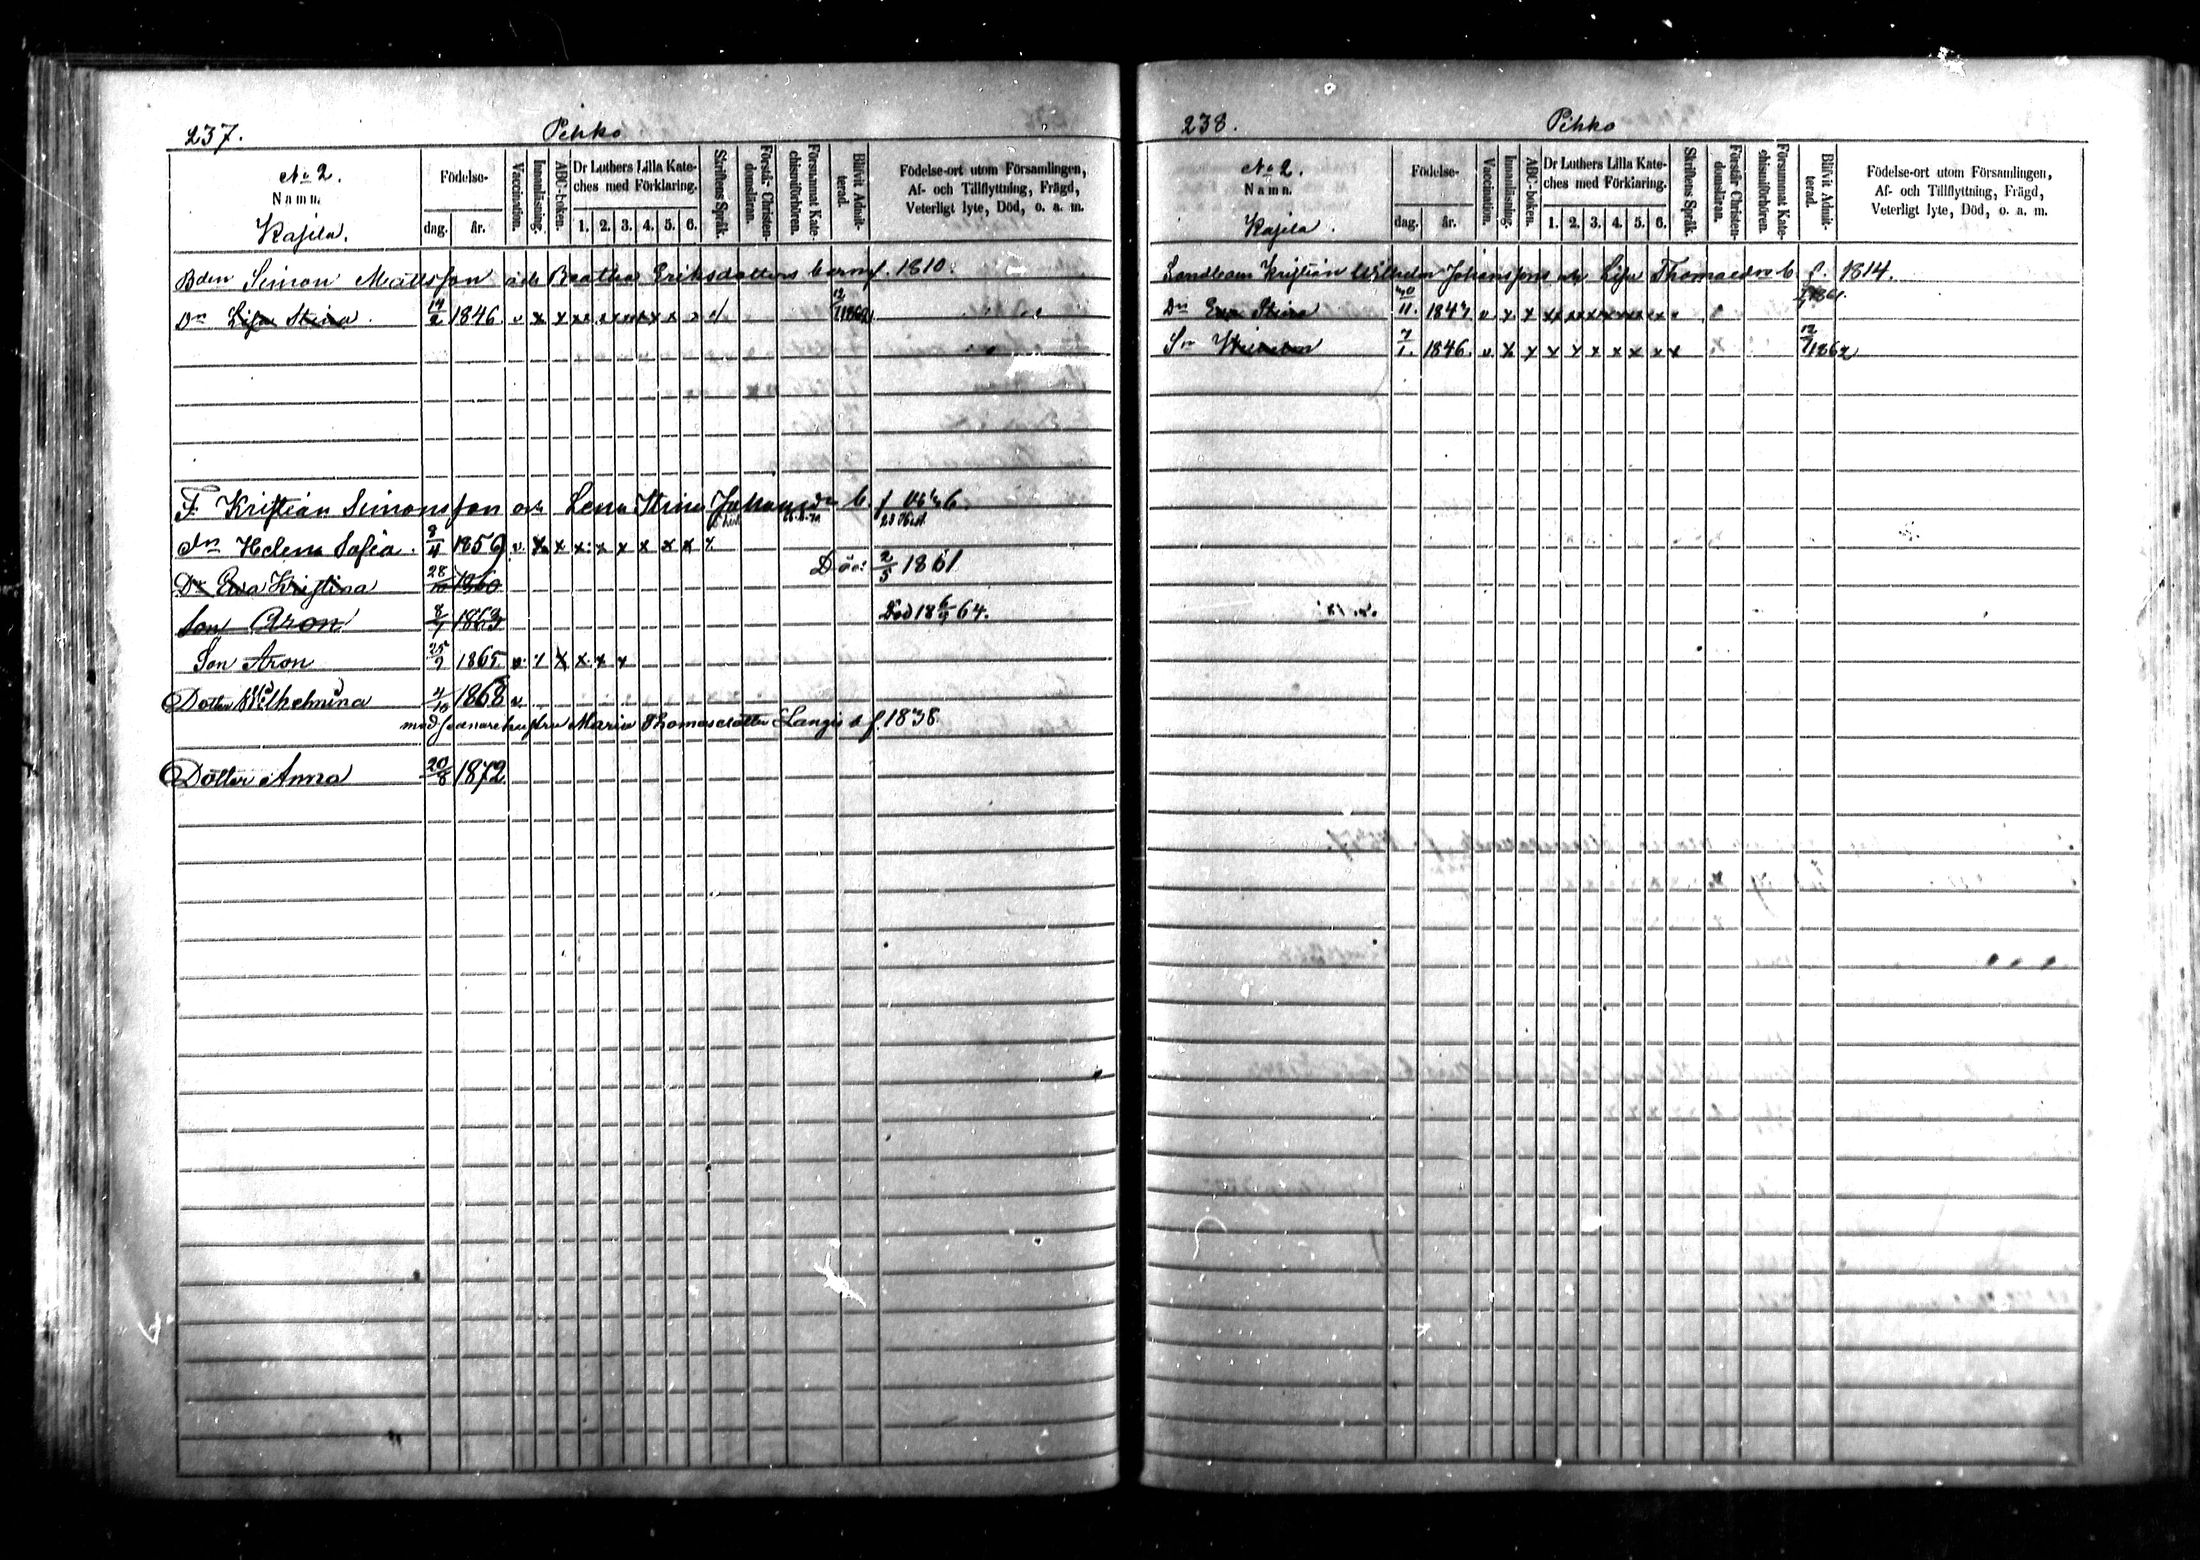 237. Pihko
No 2.
Namn.
Kajela.
Födelse-
dag. år.
Vaccination.
Innanläsning.
ABC-boken.
Dr Luthers Lilla Kate-
ches med Förklaring.
1. 2. 3. 4. 5. 6.
Skriftens Språk.
Förstår Christen-
domsläran.
Försummat Kate-
chismiförhören.
Blifvit Admit-
terad.
Födelse-ort utom Församlingen,
Af- och Tillflyttning, Frägd,
Veterligt lyte, Död, o. a. m.
Bden Simon Mattsson och Beatha Eriksdotters barn f. 1810.
Dr Lisa Stina. 14/2 1846. v x x x x x x x x
F. Kristian Simonsson och Lena Stina b. f
Helena Sofia. 8/4 1859 v. x x x x x x x x
Dr Eva Kristina 28/10 1860 Död 2/5 1861
Son Aron 8/7 1863 Död 18 6/9 64.
Son Aron 25/9 1865 v. x x x x x
Dotter Wilhelmina 4/10 1868 v.
med senare hustru Maria Thomasdotter Langi f. 1838.
Dotter Anna 20/8 1872
238. Pihko
No 2.
Namn.
Kajela.
Födelse-
dag. år.
Vaccination.
Innanläsning.
ABC-boken.
Dr Luthers Lilla Kate-
ches med Förklaring.
1. 2. 3. 4. 5. 6.
Skriftens Språk.
Förstår Christen-
domsläran.
Försummat Kate-
chismiförhören.
Blifvit Admit-
terad.
Födelse-ort utom Församlingen,
Af- och Tillflyttning, Frägd,
Veterligt lyte, Död, o. a. m.
Kristian Wilhelm Johansson och Lisa Thomasdrs b. f. 1814.
Dr Eva Stina 11. 1847 v x x x x x x x x 1861.
Sn 7/1. 1846. v x x x x x x x x x 12/7 1862